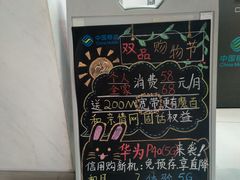 中国移动
China Mobile
双品购物节
个人消费58元/月
全家 68
送200M宽带更有魔百
和亲情网固话权益
华为P40(5G)来袭!
信用购新机:免预存享直降